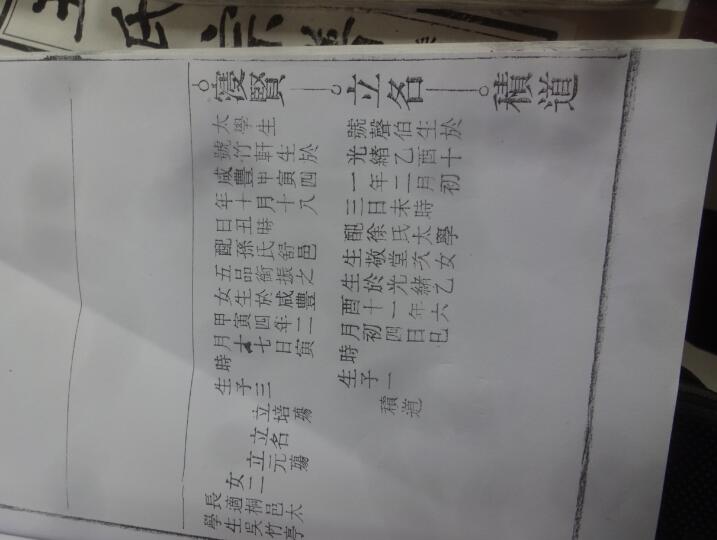 氏宗
寖賢
太學生
號竹軒生於
咸豐甲寅四
年十月十八
日丑時
配孫氏舒邑
五品銜振之
女生於咸豐
甲寅四年二
月十七日寅
時
生子三
立培殤
立名
立元殤
女二
長適桐邑太
學生吳竹亭
立名
號聲伯生於
光緒乙酉十
一年二月初
三日未時
配徐氏太學
生敬堂次女
生於光緒乙
酉十一年六
月初四日巳
時
生子一
積道
積道